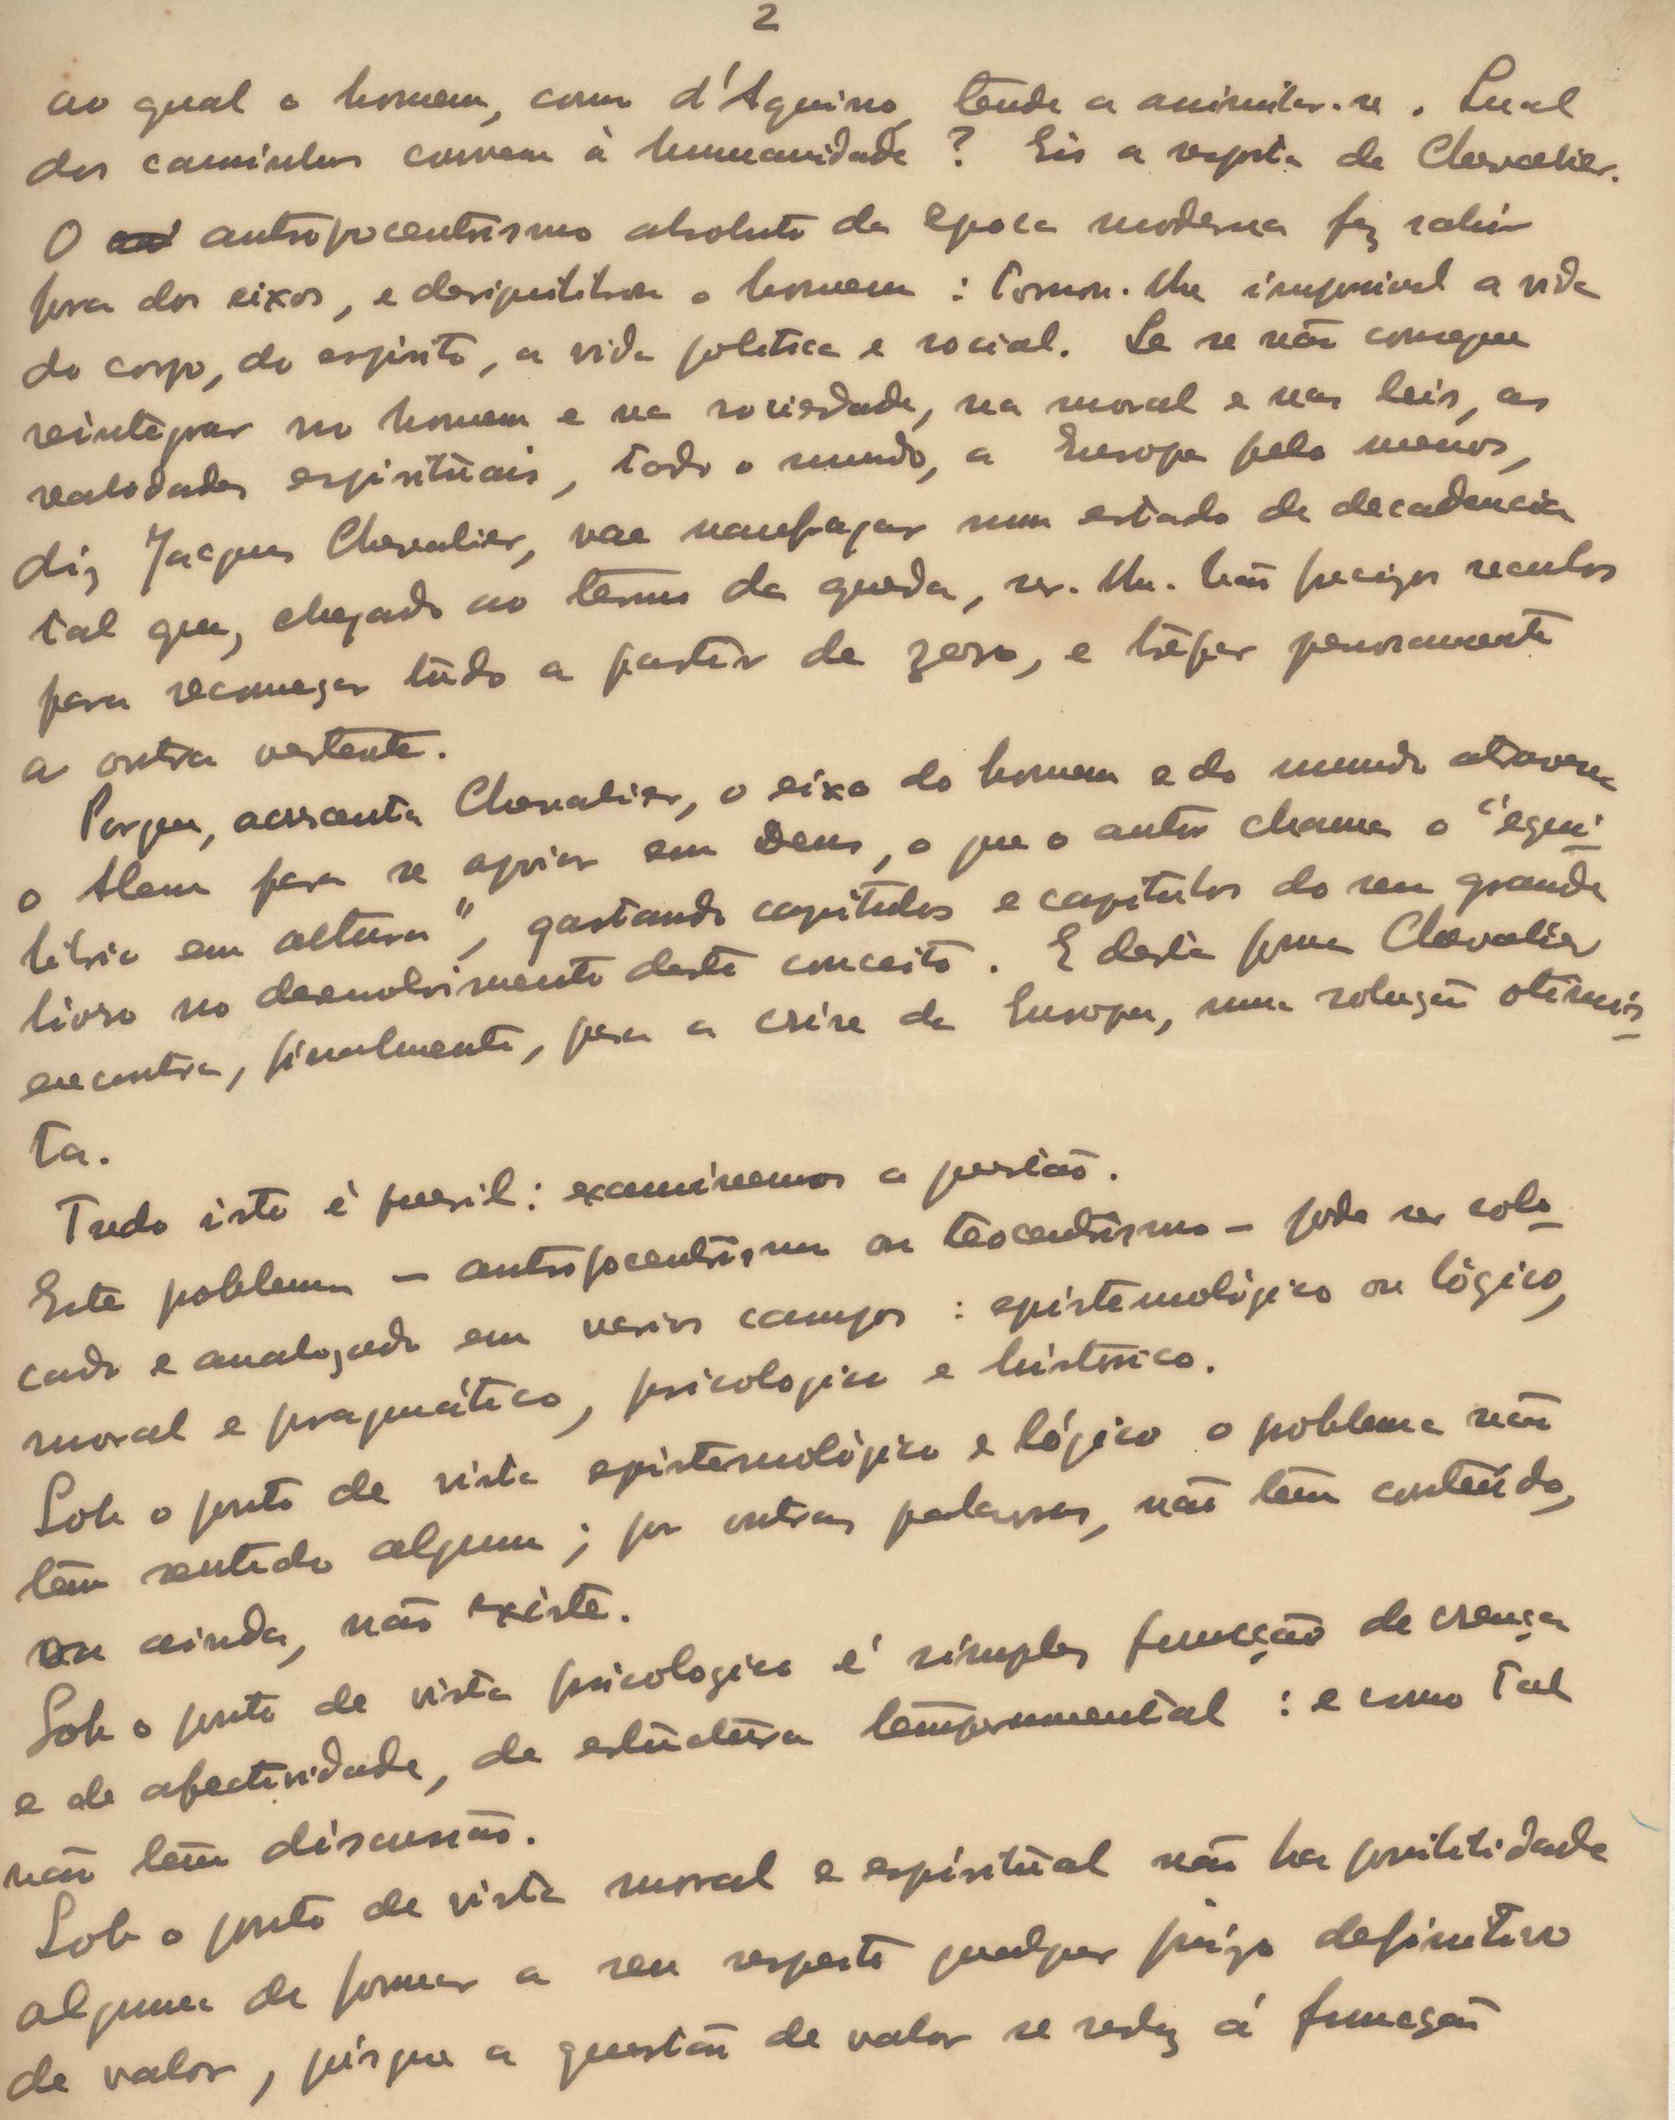 2
ao qual o homem, como d'Aquino, tende a assimilar-se. Qual
dos caminhos convem à humanidade? Eis a resposta de Chevalier.
O antropocentrismo absoluto da epoca moderna fez sahir
fora dos eixos, e desiquilibrou o homem: tornou-lhe impossivel a vida
do corpo, do espirito, a vida politica e social. Se se não consegue
reintegrar no homem e na sociedade, na moral e nas leis, as
realidades espirituais, todo o mundo, a Europa pelo menos,
diz Jacques Chevalier, vae naufragar num estado de decadencia
tal que, chegado ao termo da queda, ser-lhe-hão precizos seculos
para recomeçar tudo a partir de zero, e trepar penosamente
a outra vertente.
Porque, acrescenta Chevalier, o eixo do homem e do mundo atravessa
o Alem para se apoiar em Deus, o que o autor chama o "equi-
librio em altura", gastando capitulos e capitulos do seu grande
livro no desenvolvimento deste conceito. E desta forma Chevalier
encontra, finalmente, para a crise da Europa, uma solução otimis-
ta.
Tudo isto é pueril: examinemos a questão.
Este problema - antropocentrismo ou teocentrismo - pode ser colo-
cado e analogado em varios campos: epistemológico ou lógico,
moral e pragmático, psicologico e historico.
Sob o ponto de vista epistemológico e lógico o problema não
tem sentido algum; por outras palavras, não tem conteúdo,
ou ainda, não existe.
Sob o ponto de vista psicologico é simples funcção de crença
e de afectividade, de estructura temperamental: e como tal
não tem discussão.
Sob o ponto de vista moral e espiritual não ha possibilidade
alguma de formar a seu respeito qualquer juizo definitivo
de valor, pórque a questão de valor se reduz á funcção